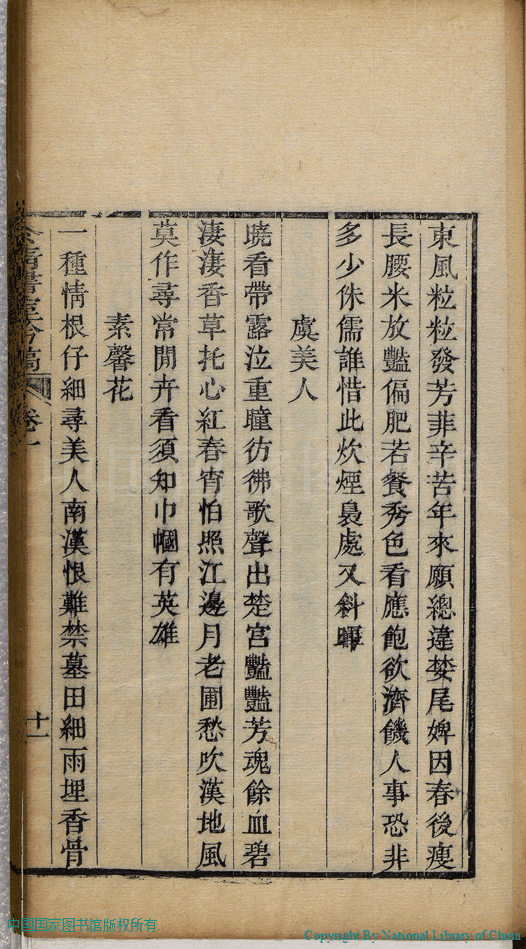 東風粒粒發芳菲辛苦年來願總違婪尾婢因春後瘦
長腰米放豔偏肥若餐秀色看應飽欲濟饑人事恐非
多少侏儒誰惜此炊煙裊處又斜暉
虞美人
曉看帶露泣重瞳彷彿歌聲出楚宮豔豔芳魂餘血碧
淒淒香草托心紅春宵怕照江邊月老圃愁吹漢地風
莫作尋常閒卉看須知巾幗有英雄
素馨花
一種情根仔細尋美人南漢恨難禁墓田細雨埋香骨
卷一
十一
中国国家图书馆版权所有
Copyright By National Library of China